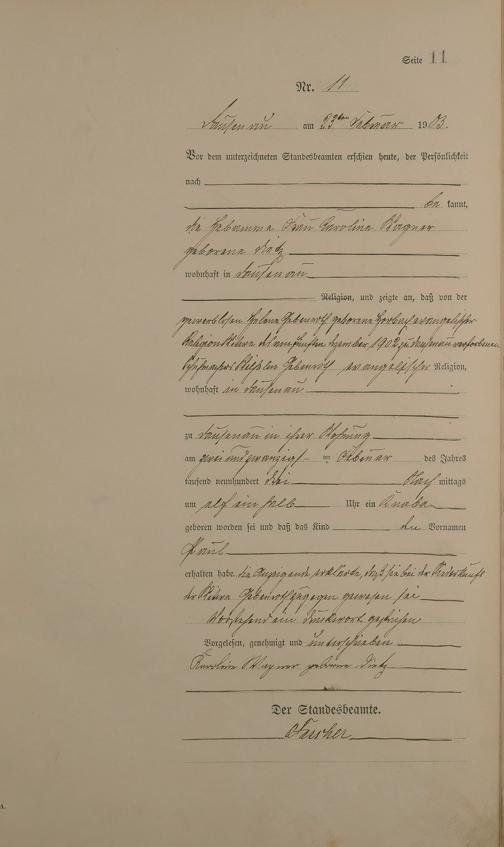 Seite 11
Nr. 11
Dausenau am 23ten Februar 1903.
Vor dem unterzeichneten Standesbeamten erschien heute, der Persönlichkeit
nach
be kannt,
die Hebamme Frau Karoline Wagner
geborene Dietz
wohnhaft in Dausenau
Religion, und zeigte an, daß von der
gewerblosen Helene geborene evangelischer
Religion Witwe des am 1902 zu Dausenau verstorbenen
evangelischer Religion,
wohnhaft in Dausenau
zu Dausenau in ihrer Wohnung
am zwei und zwanzigsten Februar des Jahres
tausend neunhundert drei Nach mittags
um elf ein halb Uhr ein Knabe
geboren worden sei und daß das Kind den Vornamen
Paul
erhalten habe. die Anzeigende erklärte, daß sie bei der Niederkunft
der Witwe zugegen gewesen sei
Vorstehend ein Druckwort gestrichen
Vorgelesen, genehmigt und unterschrieben
Karoline Wagner geborene Dietz
Der Standesbeamte.
A.